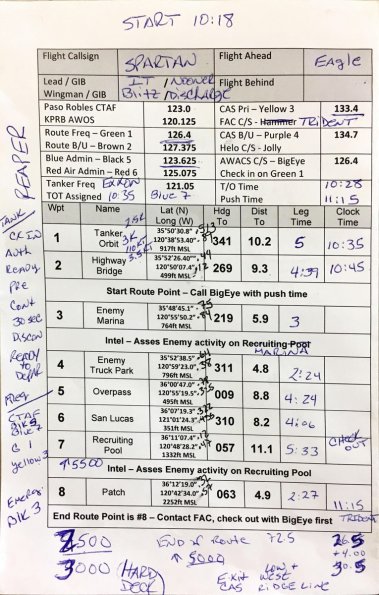 START 10:18
Flight Callsign SPARTAN Flight Ahead Eagle
Lead / GIB IT / NOONER Flight Behind
Wingman / GIB Blitz / Discharge
Paso Robles CTAF 123.0 CAS Pri – Yellow 3 133.4
KPRB AWOS 120.125 FAC C/S - Hammer TRIDENT
Route Freq – Green 1 126.4 CAS B/U – Purple 4 134.7
Route B/U – Brown 2 127.375 Helo C/S - Jolly
Blue Admin – Black 5 123.625 AWACS C/S – BigEye 126.4
Red Air Admin – Red 6 125.075 Check in on Green 1
Tanker Freq EXXON 121.05 T/O Time 10:28
TOT Assigned 10:35 Blue 7 Push Time 11:15
Wpt Name Lat (N) Long (W) Hdg To Dist To Leg Time Clock Time
1 Tanker Orbit 35°50'30.8" 120°38'53.40" 917ft MSL 341 10.2 5 10:35
2 Highway Bridge 35°52'26.40"" 120°50'07.4" 499ft MSL 269 9.3 4:39 10:45
Start Route Point – Call BigEye with push time
3 Enemy Marina 35°48'45.1" 120°55'50.2" 764ft MSL 219 5.9 3
Intel – Asses Enemy activity on Recruiting Pool
MARINA
4 Enemy Truck Park 35°52'38.5" 120°59'23.0" 796ft MSL 311 4.8 2:24
5 Overpass 36°00'47.0" 120°55'19.5" 495ft MSL 009 8.8 4:24
6 San Lucas 36°07'19.3" 121°01'24.3" 351ft MSL 310 8.2 4:06
7 Recruiting Pool 36°11'07.4" 120°48'28.2" 1332ft MSL 057 11.1 5:33 CHECK OUT
↑5500
Intel – Asses Enemy activity on Recruiting Pool
8 Patch 36°12'19.0" 120°42'34.0" 2252ft MSL 063 4.9 2:27 11:15
End Route Point is #8 – Contact FAC, check out with BigEye first TRIDENT
REAPER
TANK
CK IN
Auth
READY
PRE
Cont
30 sec
DISCON
READY
TO
DEPAR
FREQ
CTAF
BLK 5
G 1
yellow 3
BLK 3
2500 END of ROUTE 72.5 26.5
↑ 5000 +4.00
3000 (HARD DECK) 30.5
EXIT LOW + WEST
CAS RIDGE LINE